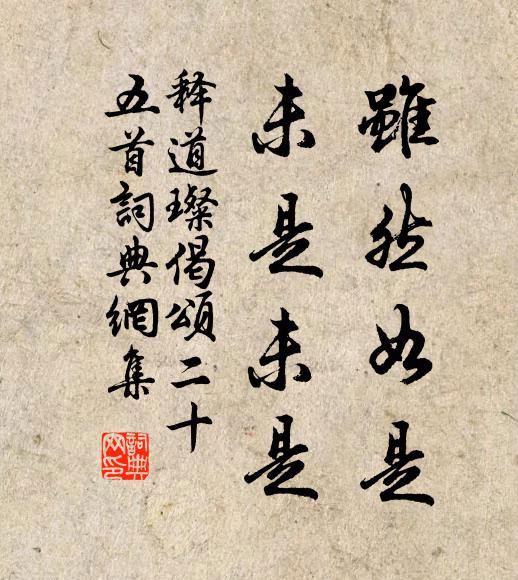 雖然如是
未是未是
释道璨偈頌二十
五首詞典網集
詞典網印